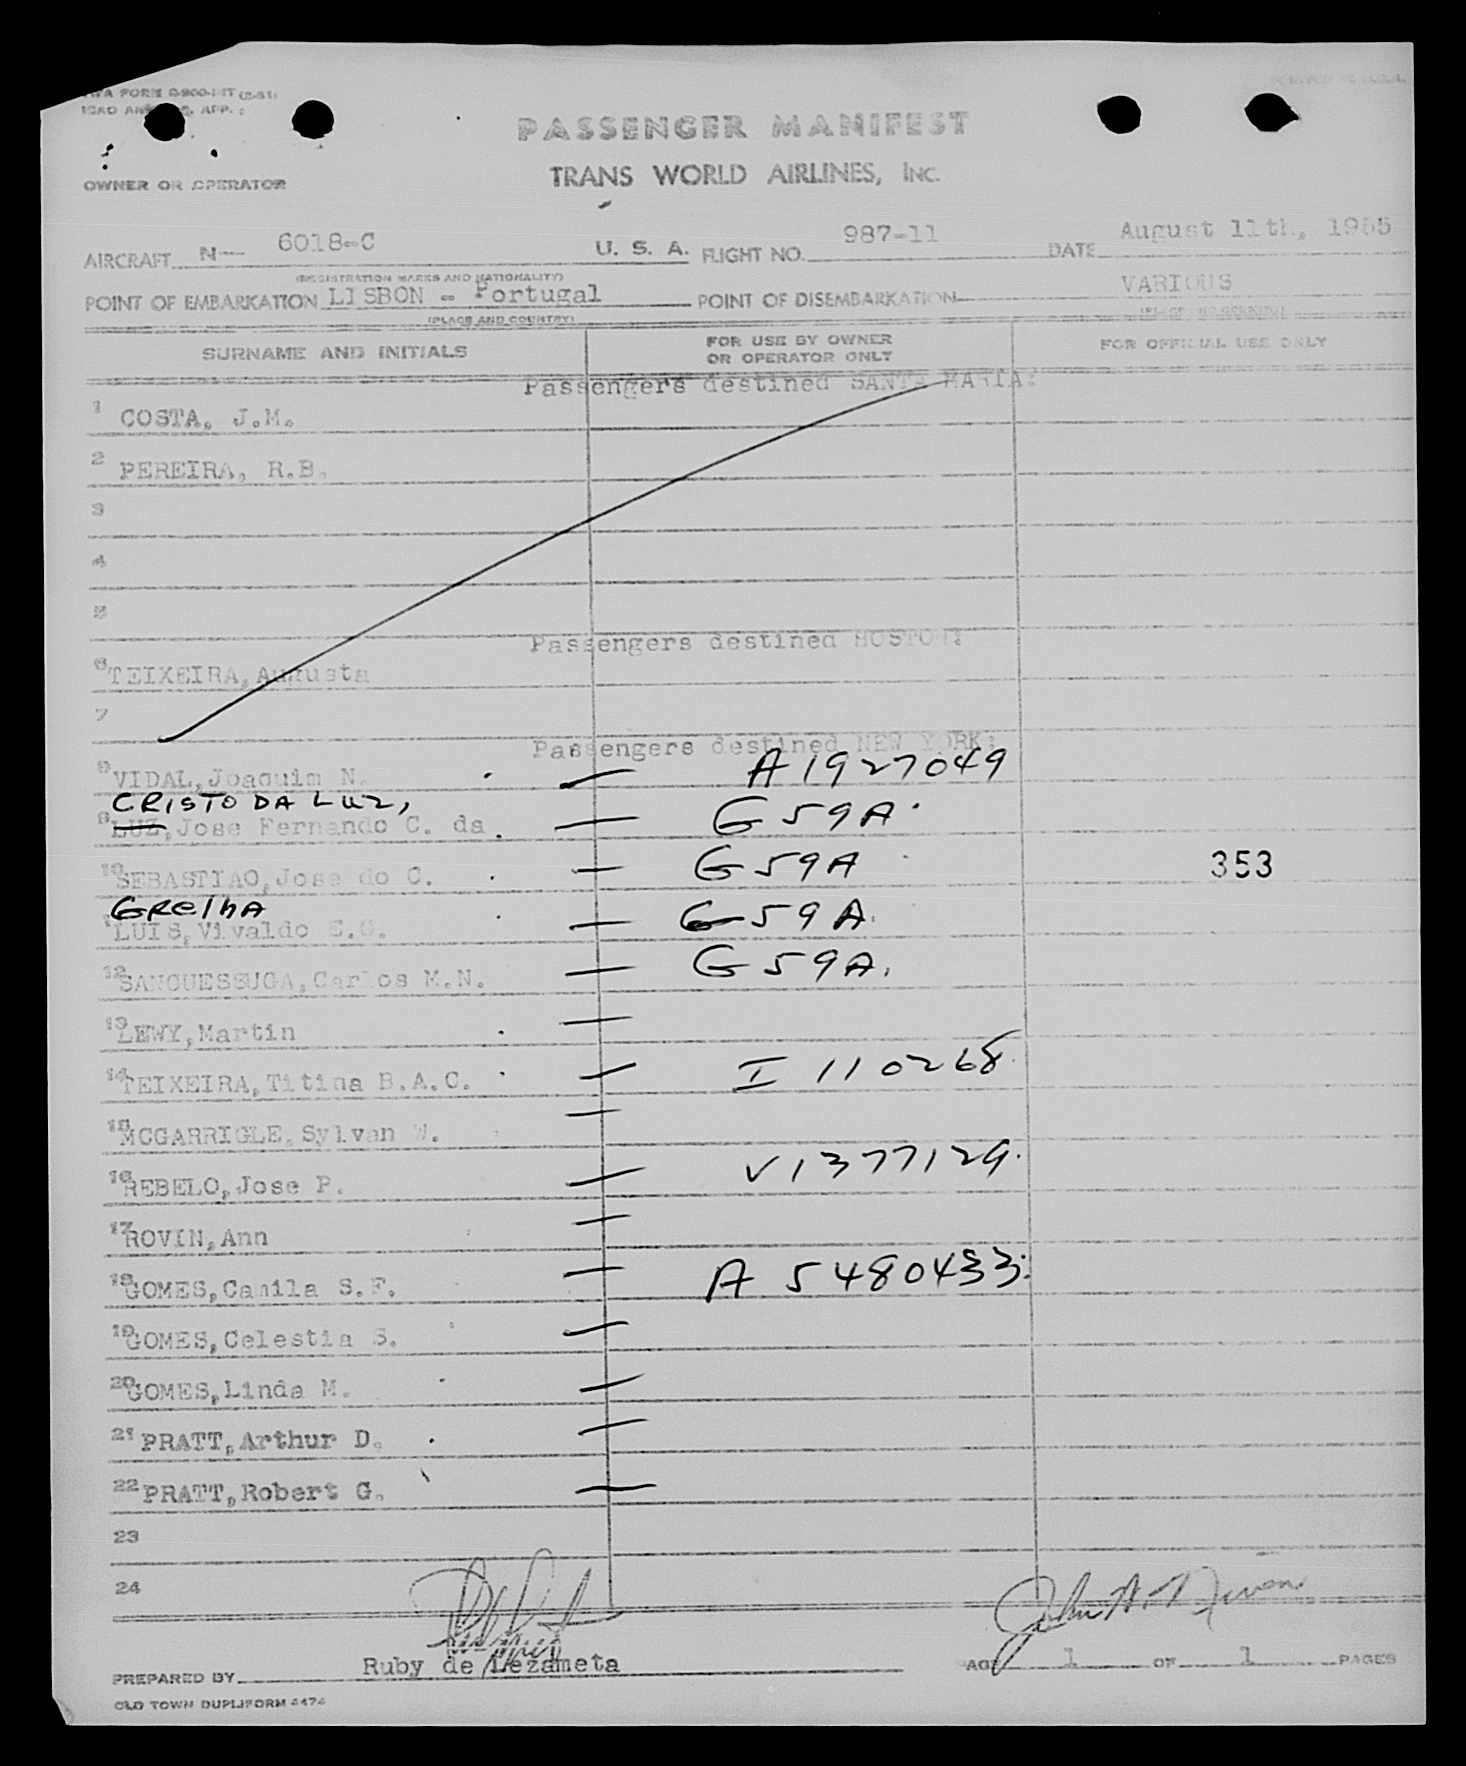 TWA FORM
ICAO APP.
PASSENGER MANIFEST
TRANS WORLD AIRLINES, Inc.
OWNER OR OPERATOR
AIRCRAFT N— 6018-C U. S. A. FLIGHT NO. 987-11 DATE August 11th, 1955
(REGISTRATION MARKS AND NATIONALITY)
POINT OF EMBARKATION LISBON - Portugal POINT OF DISEMBARKATION VARIOUS
(PLACE AND COUNTRY)
SURNAME AND INITIALS FOR USE BY OWNER OR OPERATOR ONLY FOR OFFICIAL USE ONLY
Passengers destined SANTA MARIA:
1 COSTA, J.M.
2 PEREIRA, R.B.
3
4
5
Passengers destined BOSTON:
6 TEIXEIRA, Augusta
7
Passengers destined NEW YORK:
8 VIDAL, Joaquim N. A 1927049
CRISTO DA LUZ,
9 LUZ, Jose Fernando C. da G 59A
10 SEBASTIAO, Jose do C. G 59A 353
GRelhA
11 LUIS, Vivaldo G 59A
12 SANGUESSUGA, Carlos M.N. G 59A.
13 LEWY, Martin
14 TEIXEIRA, Titina B.A.C. I 110268
15 MCGARRIGLE, Sylvan W.
16 REBELO, Jose P. V1377129
17 ROVIN, Ann
18 GOMES, Camila S.F. A 5480433
19 GOMES, Celestia S.
20 GOMES, Linda M.
21 PRATT, Arthur D.
22 PRATT, Robert G.
23
24
PREPARED BY Ruby de Lezameta PAGE 1 OF 1 PAGES
OLD TOWN DUPLIFORM 4474